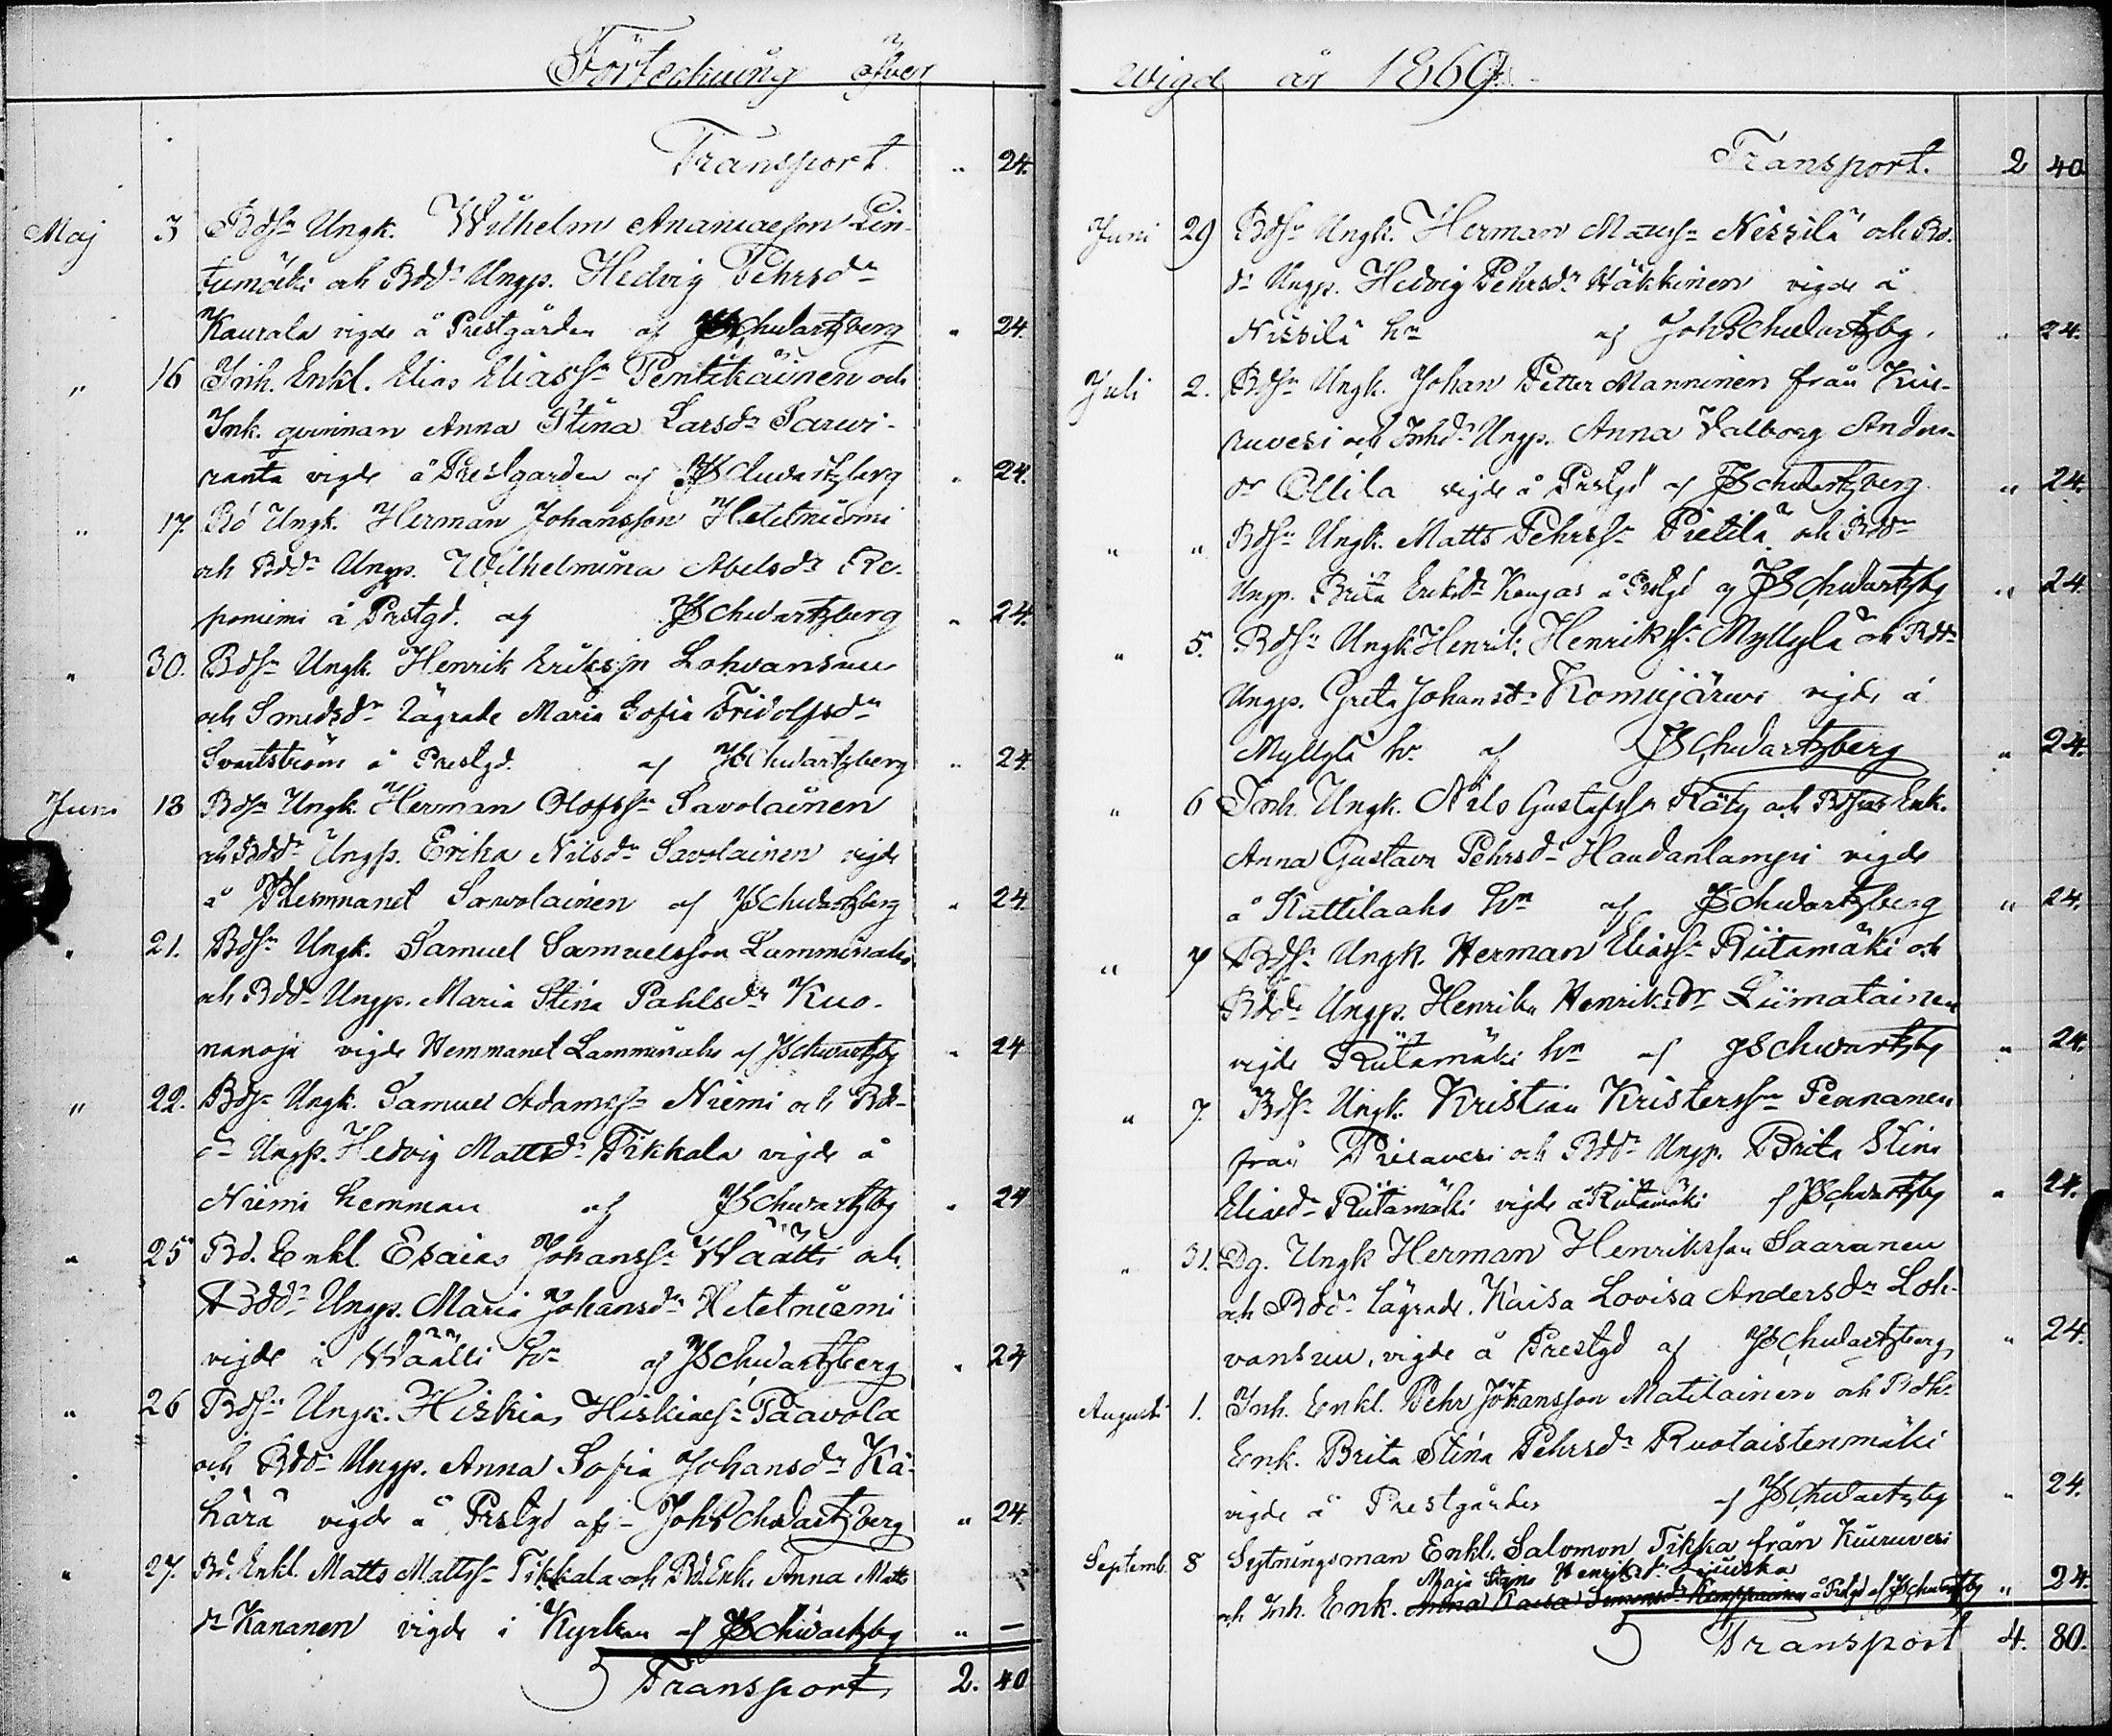 Förteckning öfver
Transport " 24.
Maj 3 Bdsn Ungk. Wilhelm Ananiaeson Lin-
tumäki och Bddr Ungp. Hedvig Pehrsdr
Kaurala vigde å Prestgården af JSchwartzberg " 24.
" 16 Inh. Enkl. Elias Eliassn Pentikäinen och
Inh. qvinnan Anna Stina Larsdr Sarvi-
ranta vigde å Prestgården af JSchwartzberg " 24.
" 17. Bd Ungk. Herman Johansson Hetetniemi
och Bddr Ungp. Wilhelmina Abelsdr Re-
poniemi å Prstgd. af JSchwartzberg " 24.
" 30. Bdsn Ungk. Henrik Erikssn Lohvansuu
och Smedsdr Lägrade Maria Sofia Fridolfsdr
Svartström å Prestgd. af JSchwartzberg " 24.
Juni 18 Bdsn Ungk Herman Olofssn Savolainen
och Bddr Ungp. Erika Nilsdr Savolainen vigde
å Hemmanet Savolainen af JSchwartzberg " 24.
" 21. Bdsn Ungk. Samuel Samuelsson Lamminaho
och Bddr Ungp. Maria Stina Pahlsdr Kuo-
nanoja vigde Hemmanet Lamminaho af JSchwartzbg " 24
" 22. Bdsn Ungk. Samuel Adamssn Niemi och Bd-
dr Ungp. Hedvig Mattsdr Tikkala vigde å
Niemi hemman af JSchwartzbg " 24
" 25 Bd. Enkl. Esaias Johanssn Wäätti och
Bddr Ungp. Maria Johansdr Hetetniemi
vigde å Wäätti hn af JSchwartzberg " 24
" 26 Bdsn Ungk. Hiskias Hiskiaesn Paavola
och Bddr Ungp. Anna Sofia Johansdr Kä-
härä vigde å Prstgd af JohSchwartzberg " 24.
" 27. Bd. Enkl. Matts Mattssn Tikkala och Bd. Enk. Anna Matts
dr Kananen vigde i Kyrkan af JSchwartzbg " —
Transport 2. 40
Wigde år 1869.
Transport. 2 40
Juni 29 Bdsn Ungk. Herman Matssn Nissilä och Bd.
dr Ungp. Hedvig Pehrsdr Häkkinen vigde å
Nissilä hn af JohSchwartzbg. " 24.
Juli 2. Bdsn Ungk. Johan Petter Manninen från Kiu-
ruvesi och Inhdr Ungp. Anna Valborg Anders-
dr Ollila vigde å Prstgd af JSchwartzberg " 24.
" " Bdsn Ungk. Matts Pehrssn Pietilä och Bddr
Ungp. Brita Eriksdr Kangas å Prstgd af JSchwartzbg " 24
" 5. Bdsn Ungk Henrik Henrikssn Myllylä och Bddr
Ungp. Greta Johansdr Komujärvi vigde å
Myllylä hn af JSchwartzberg " 24.
" 6 Inh. Ungk. Nils Gustafssn Räty och Enk.
Anna Gustava Pehrsdr Haudanlampi vigde
å Kattilaaho hn af JSchwartzberg " 24.
" 7 Bdsn Ungk. Herman Eliassn Riitamäki och
Bddr Ungp. Henrika Henriksdr Liimatainen
vigde Riitamäki hn af JSchwartzbg " 24.
" 7. Bdsn Ungk. Kristian Kristerssn Pennanen
från Pielavesi och Bddr Ungp. Brita Stina
Eliaedr Riitamäki vigde å Riitamäki af JSchwartzbg " 24.
" 31. Dg. Ungk Herman Henriksson Saaranen
och Bddr Lägrade. Kaisa Lovisa Andersdr Loh-
vansuu, vigde å Prestgd af JSchwartzberg " 24.
Augusti 1. Inh. Enkl. Pehr Johansson Matilainen och
Enk. Brita Stina Pehrsdr Ruotaistenmäki
vigde å Prestgården af JSchwartzbg " 24.
Septemb. 8 Sytningsman Enkl. Salomon Tikka från Kiuruvesi
Maja Henriksdr
och Inh. Enk. Anna Kaisa Simonsdr å Prstgd af JSchwartzbg " 24.
Transport 4. 80.